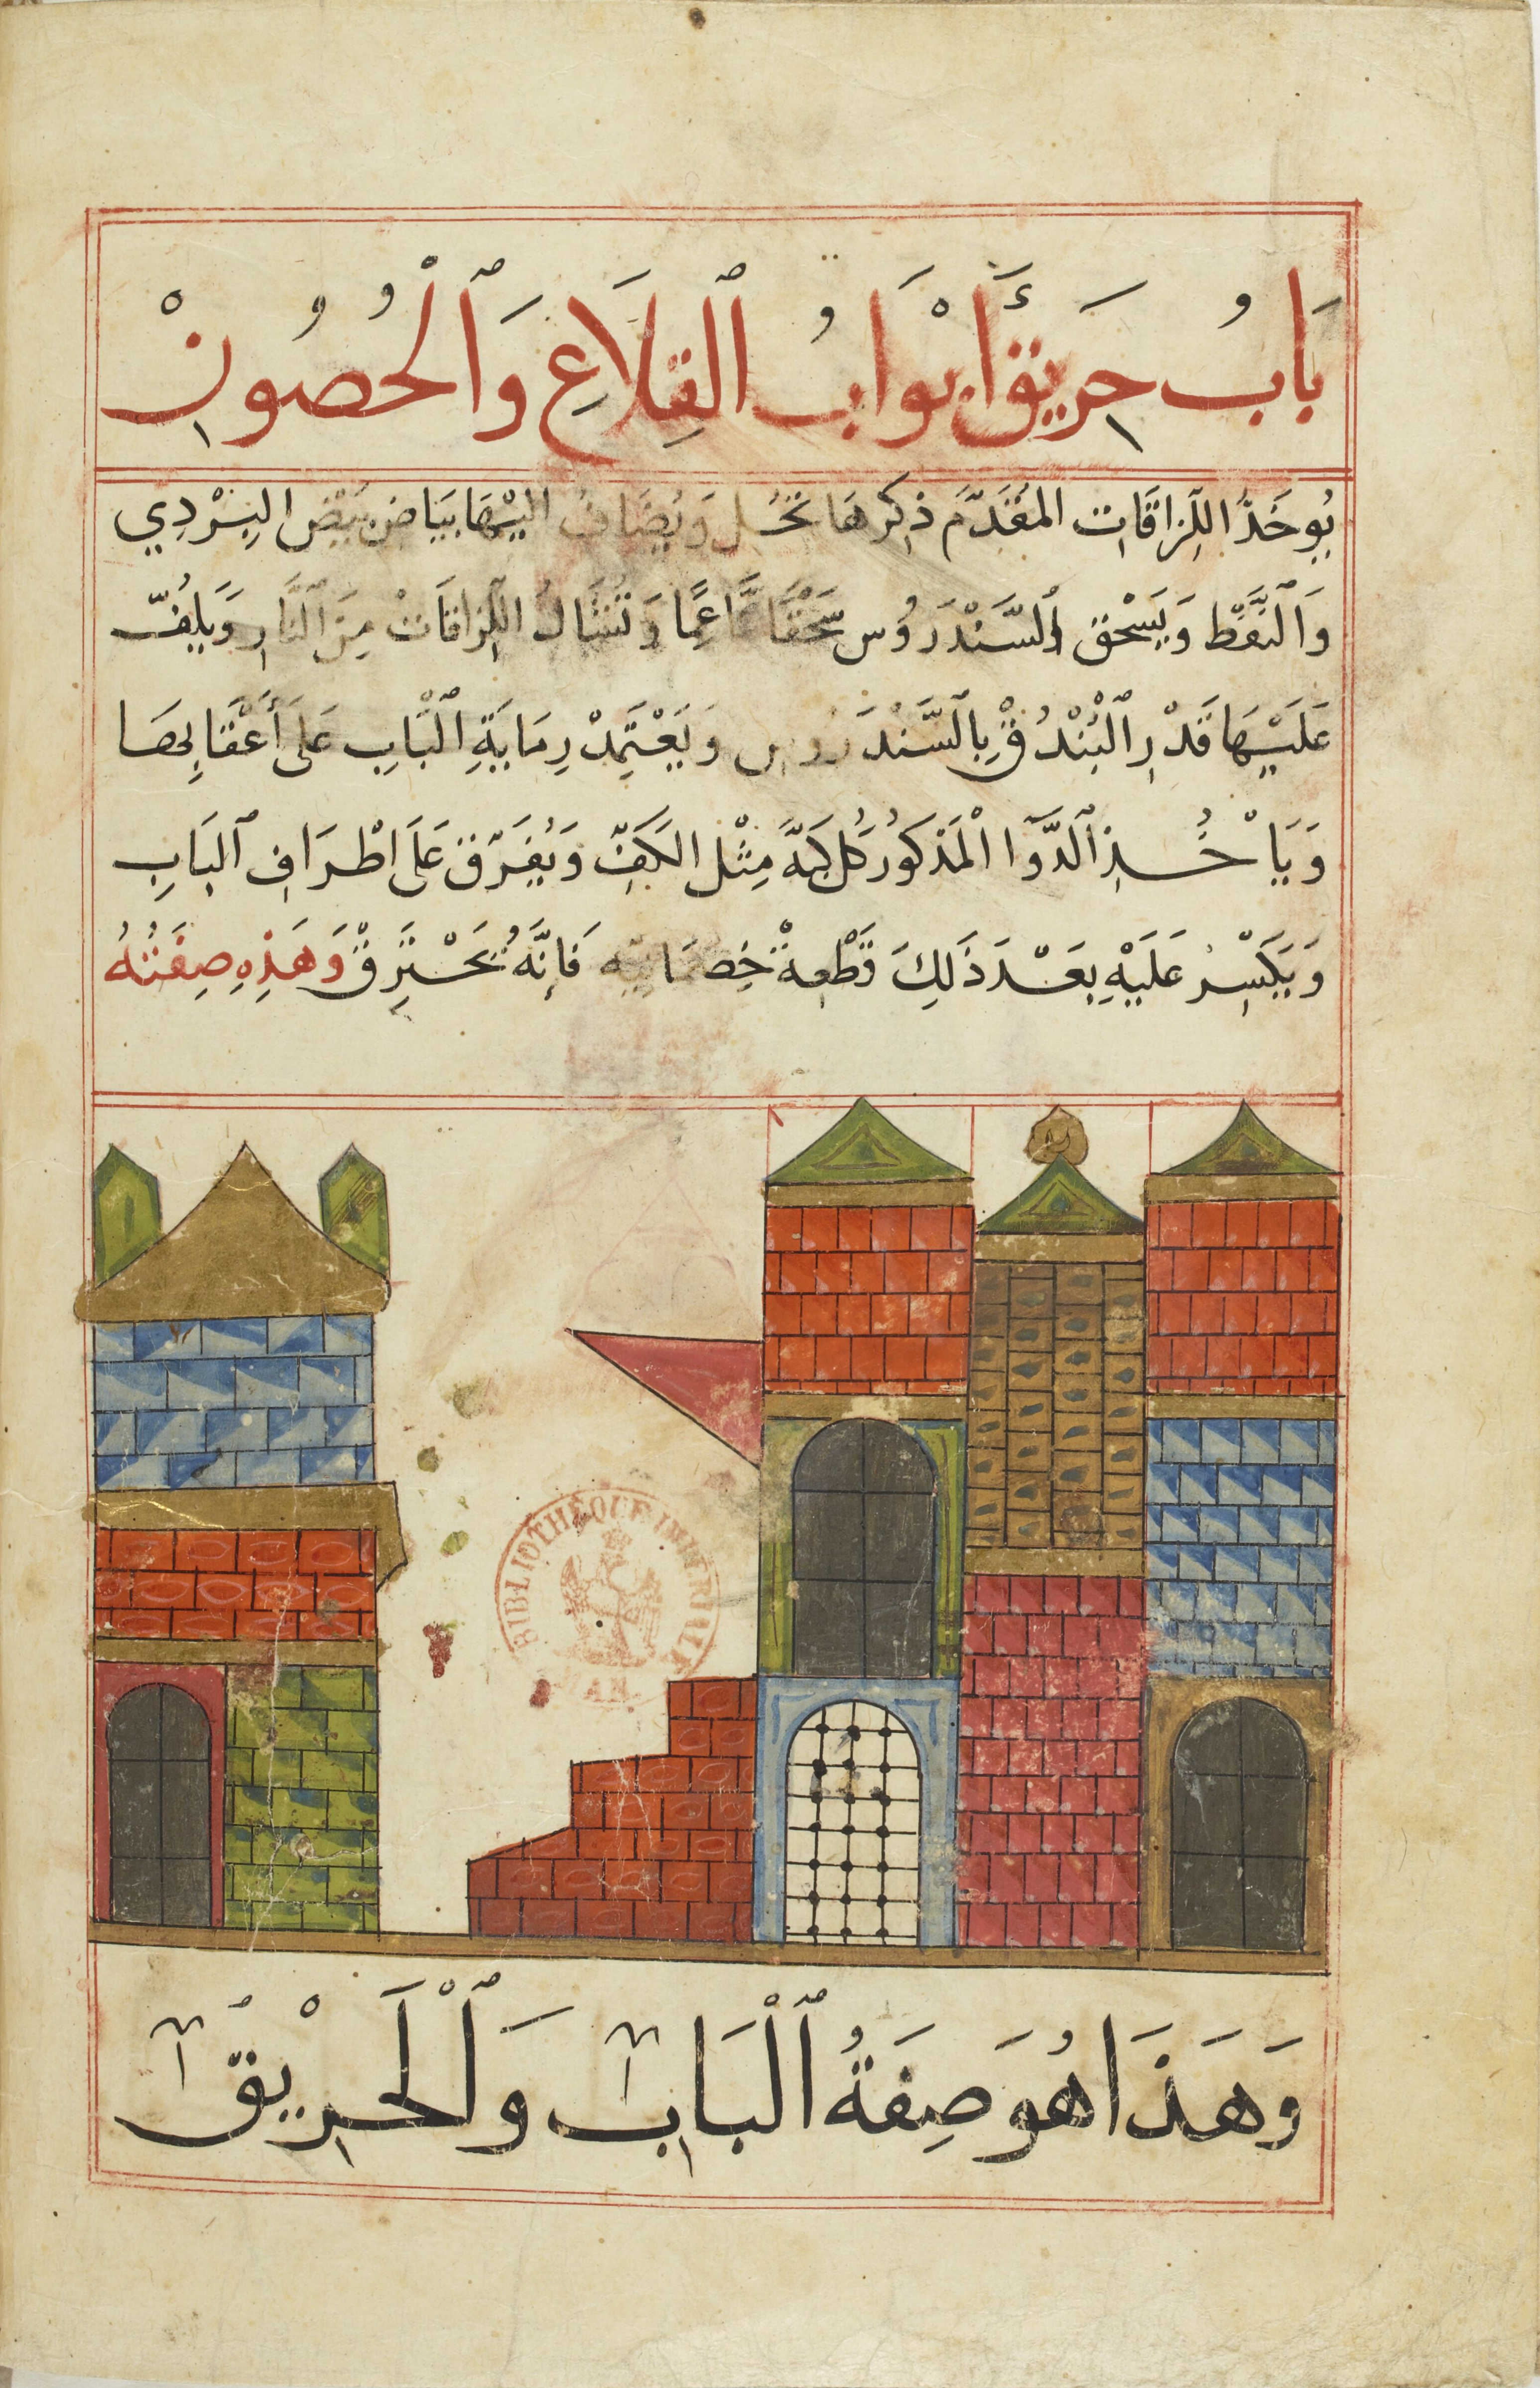 بَابُ حَرِيقِ أَبْوَابُ ٱلْقِلَاعِ وَٱلْحُصُونْ
يُوخَذُ اللِّزاقَات المُقَدَّم ذِكرهَا تحُل وَيُضَافُ اليْهَا بَيَاض بَيْض البِرْدِي
وَٱلنَّفْط وَيَسْحق ٱلسَّنْدَرُوُس سَحْقًا نَاعِمًا وَتُشَالُ اللِّزاقَاتْ مِنَ ٱلنَّارِ وَيَلِفُّ
عَلَيْهَا قَدْرِ ٱلْبُنْدُقْ بِٱلسَّنْدَرُوس وَيَعْتَمِدْ رِمَايَةِ ٱلْبَابِ عَلَى أَعْقَابِ
وَيَاْخُذ ٱلدَّوَا الْمَذكَوُر كُل كبَّة مِثْل الكَفّ وَيُفَرّق عَلَى اطْرَافِ ٱلبَابِ
وَيَكَسِّرُ عَلَيْهِ بعَدْ ذَلِكَ قَطْعِةْ فَإِنَّهُ يَحْتَرِقْ وَهَذِهِ صِفَتُهُ
BIBLIOTHÈQUE IMPÉRIALE
MAN.
وَهَذَا هُوَ صِفَةُ ٱلْبَابِ وَٱلْحَرِيْقِ